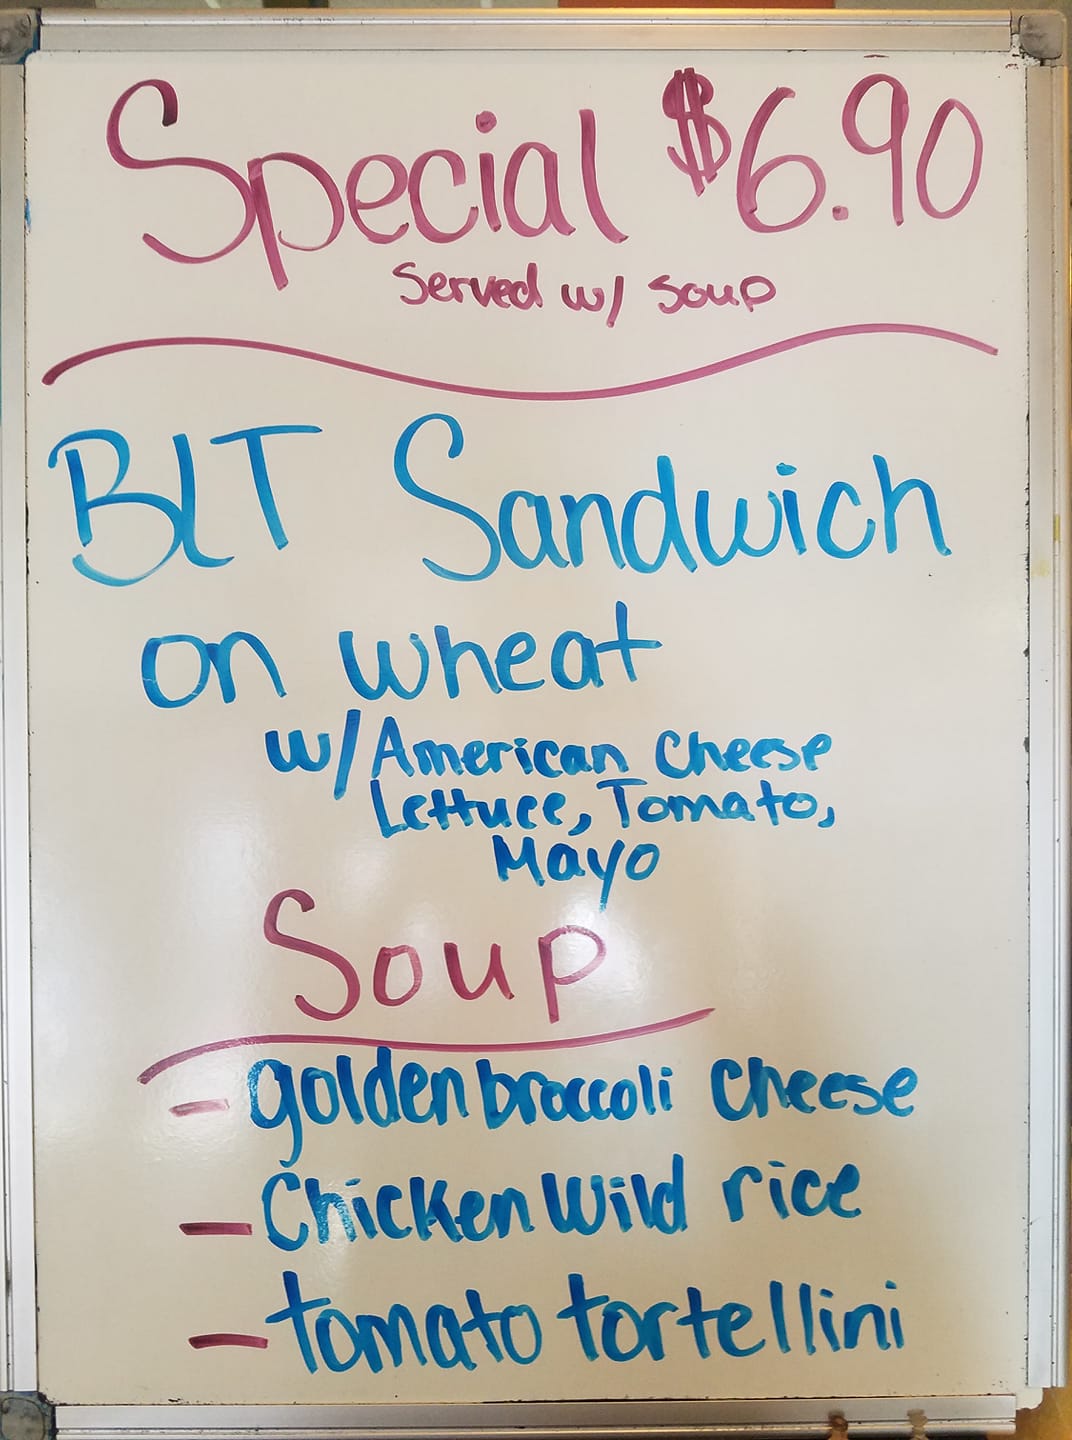 Special $6.90
Served w/ soup
BLT Sandwich
on wheat
w/American Cheese
Lettuce, Tomato,
Mayo
Soup
- golden broccoli Cheese
- Chicken Wild rice
- tomato tortellini